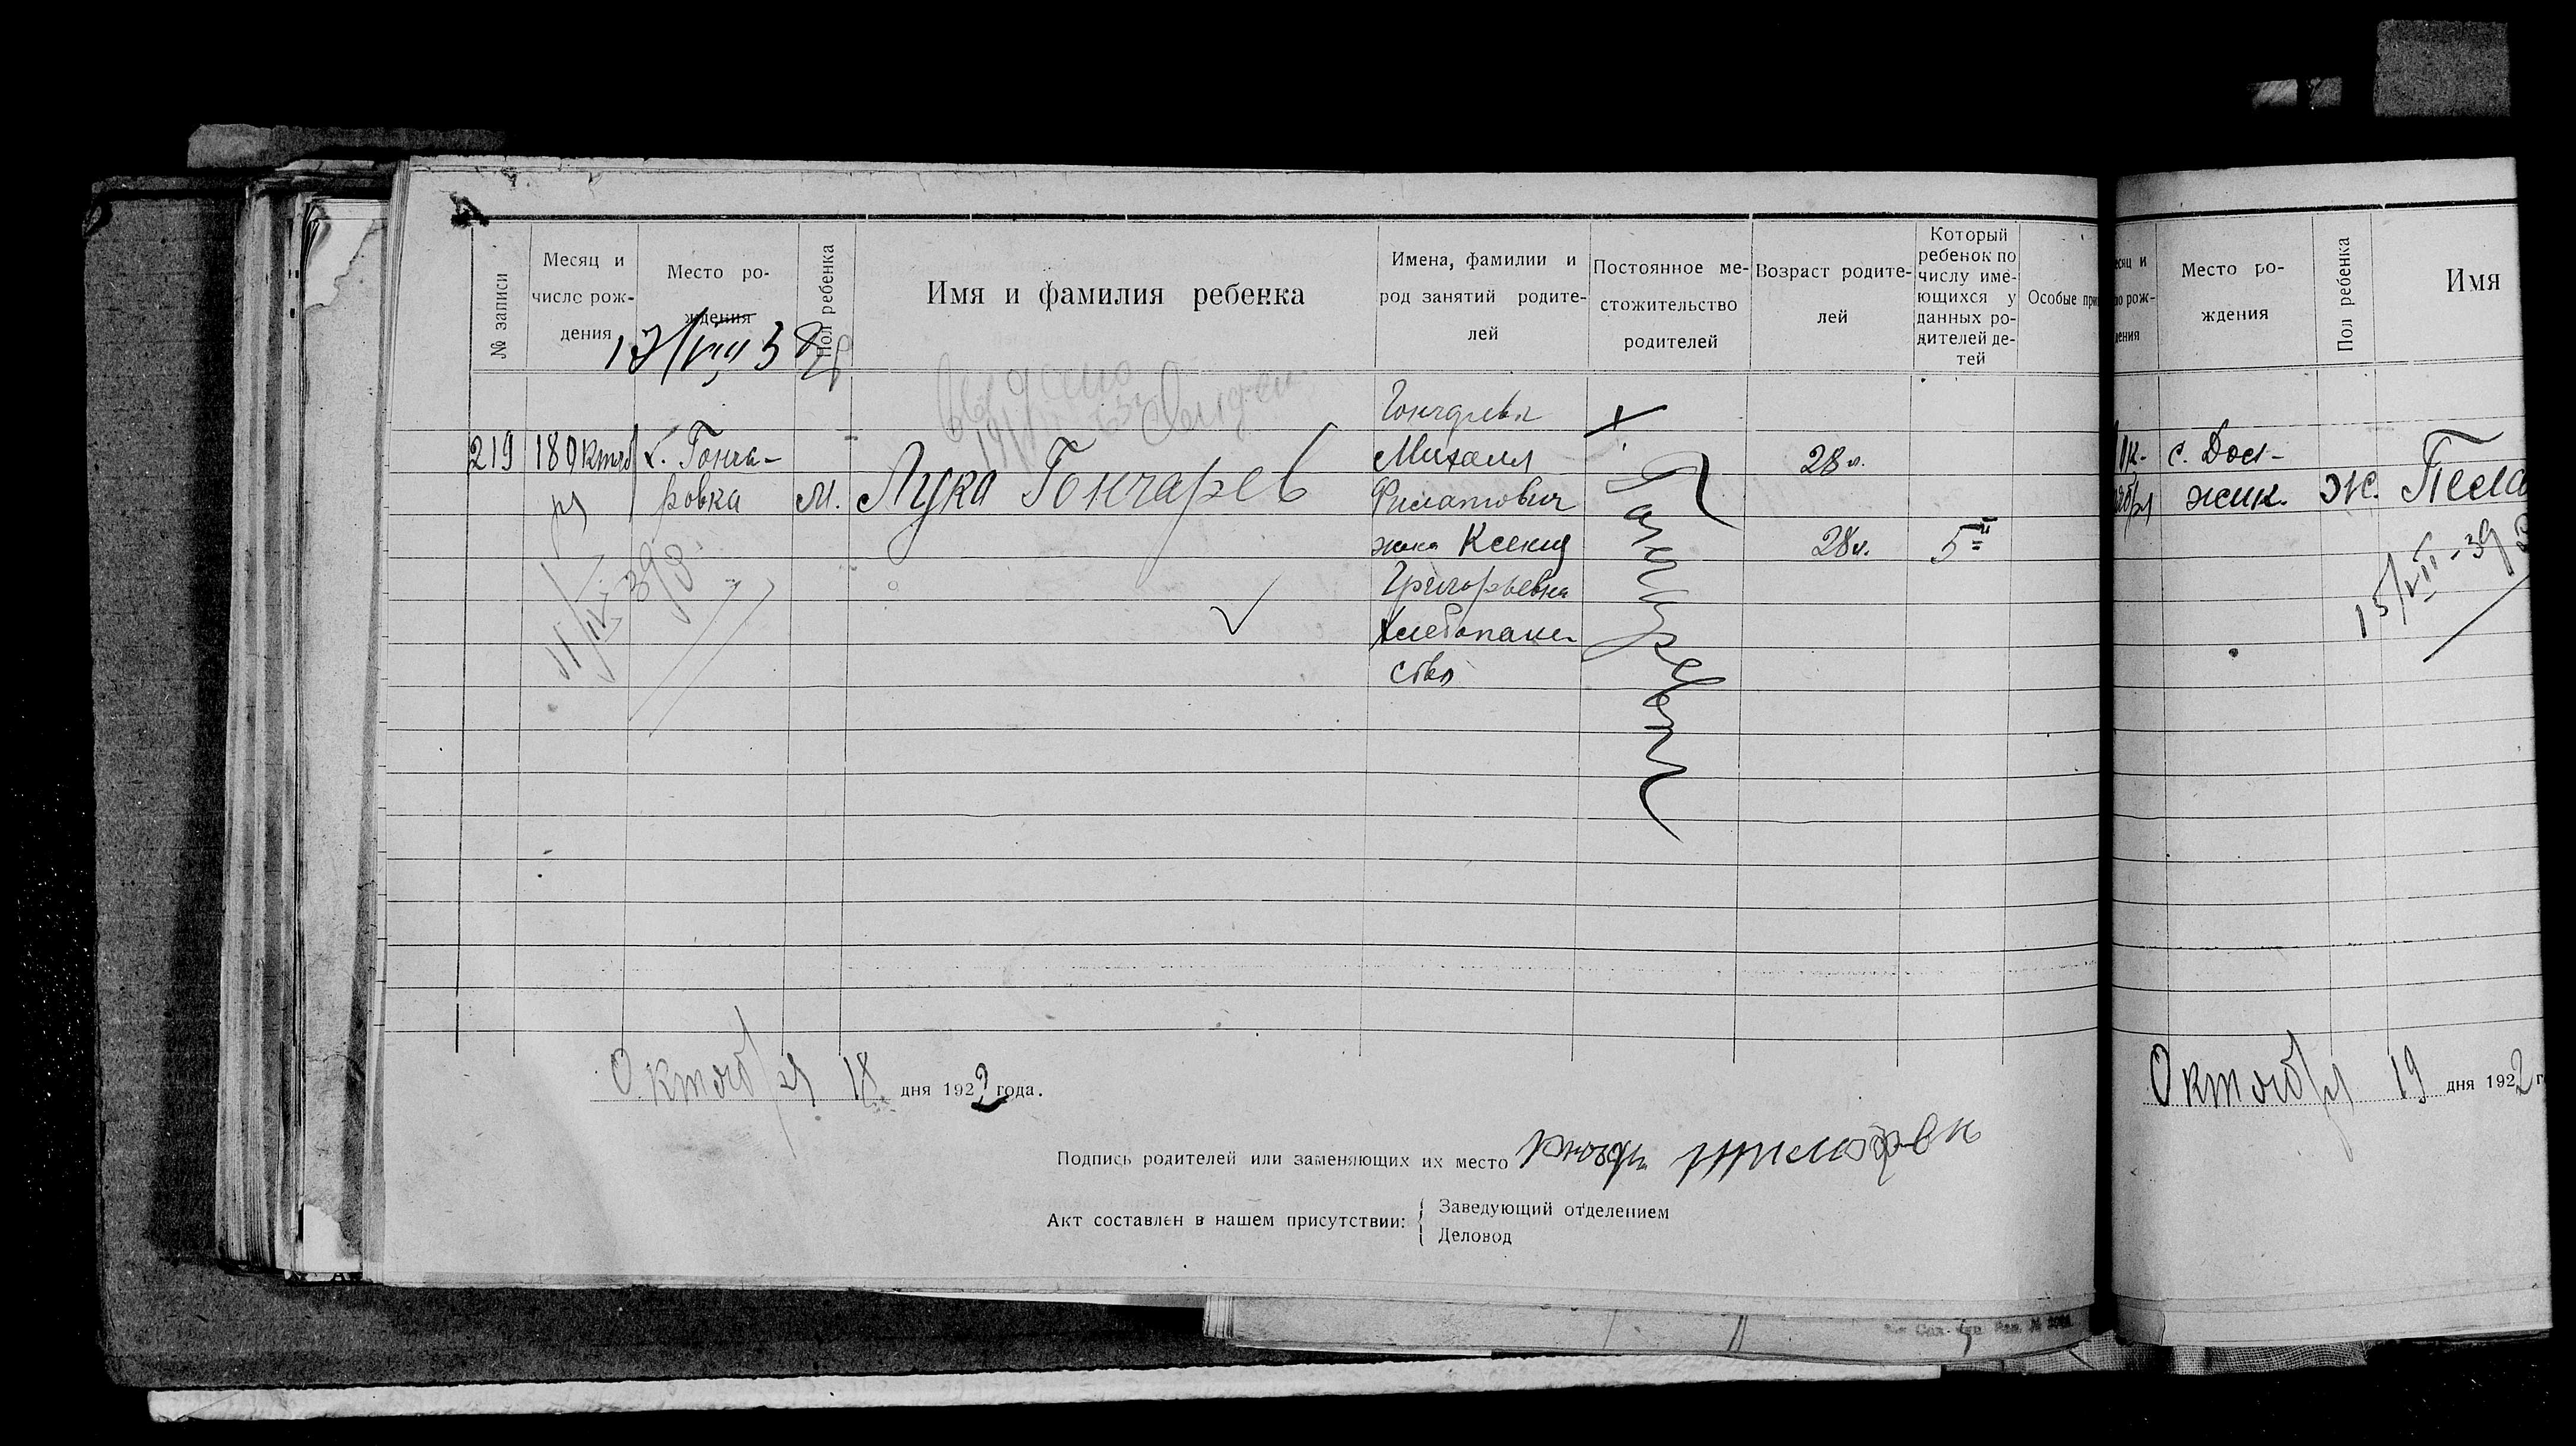 № записи
Месяц и
число рож-
дения
Место ро-
ждения
Пол ребенка
Имя и фамилия ребенка
Имена, фамилии и
род занятий родите-
лей
Постоянное ме-
стожительство
родителей
Возраст родите-
лей
Который
ребенок по
числу име-
ющихся у
данных ро-
дителей де-
тей
Особые при
219
18 Октяб
ря
с. Гонча-
ровка
М.
Лука Гончарев
Гончаревы
Михаил
Филатович
жена Ксения
Григорьевна
Хлебопаше-
ство
28 л.
28 л.
5й
Октября 18 дня 1922 года.
Подпись родителей или заменяющих их место
Акт составлен в нашем присутствии:
Заведующий отделением
Деловод
есяц и
ло рож-
дения
Место ро-
ждения
Пол ребенка
Имя
с.
жик.
Ж.
Пела
15/VIII-39
Октября 19 дня 1922 г